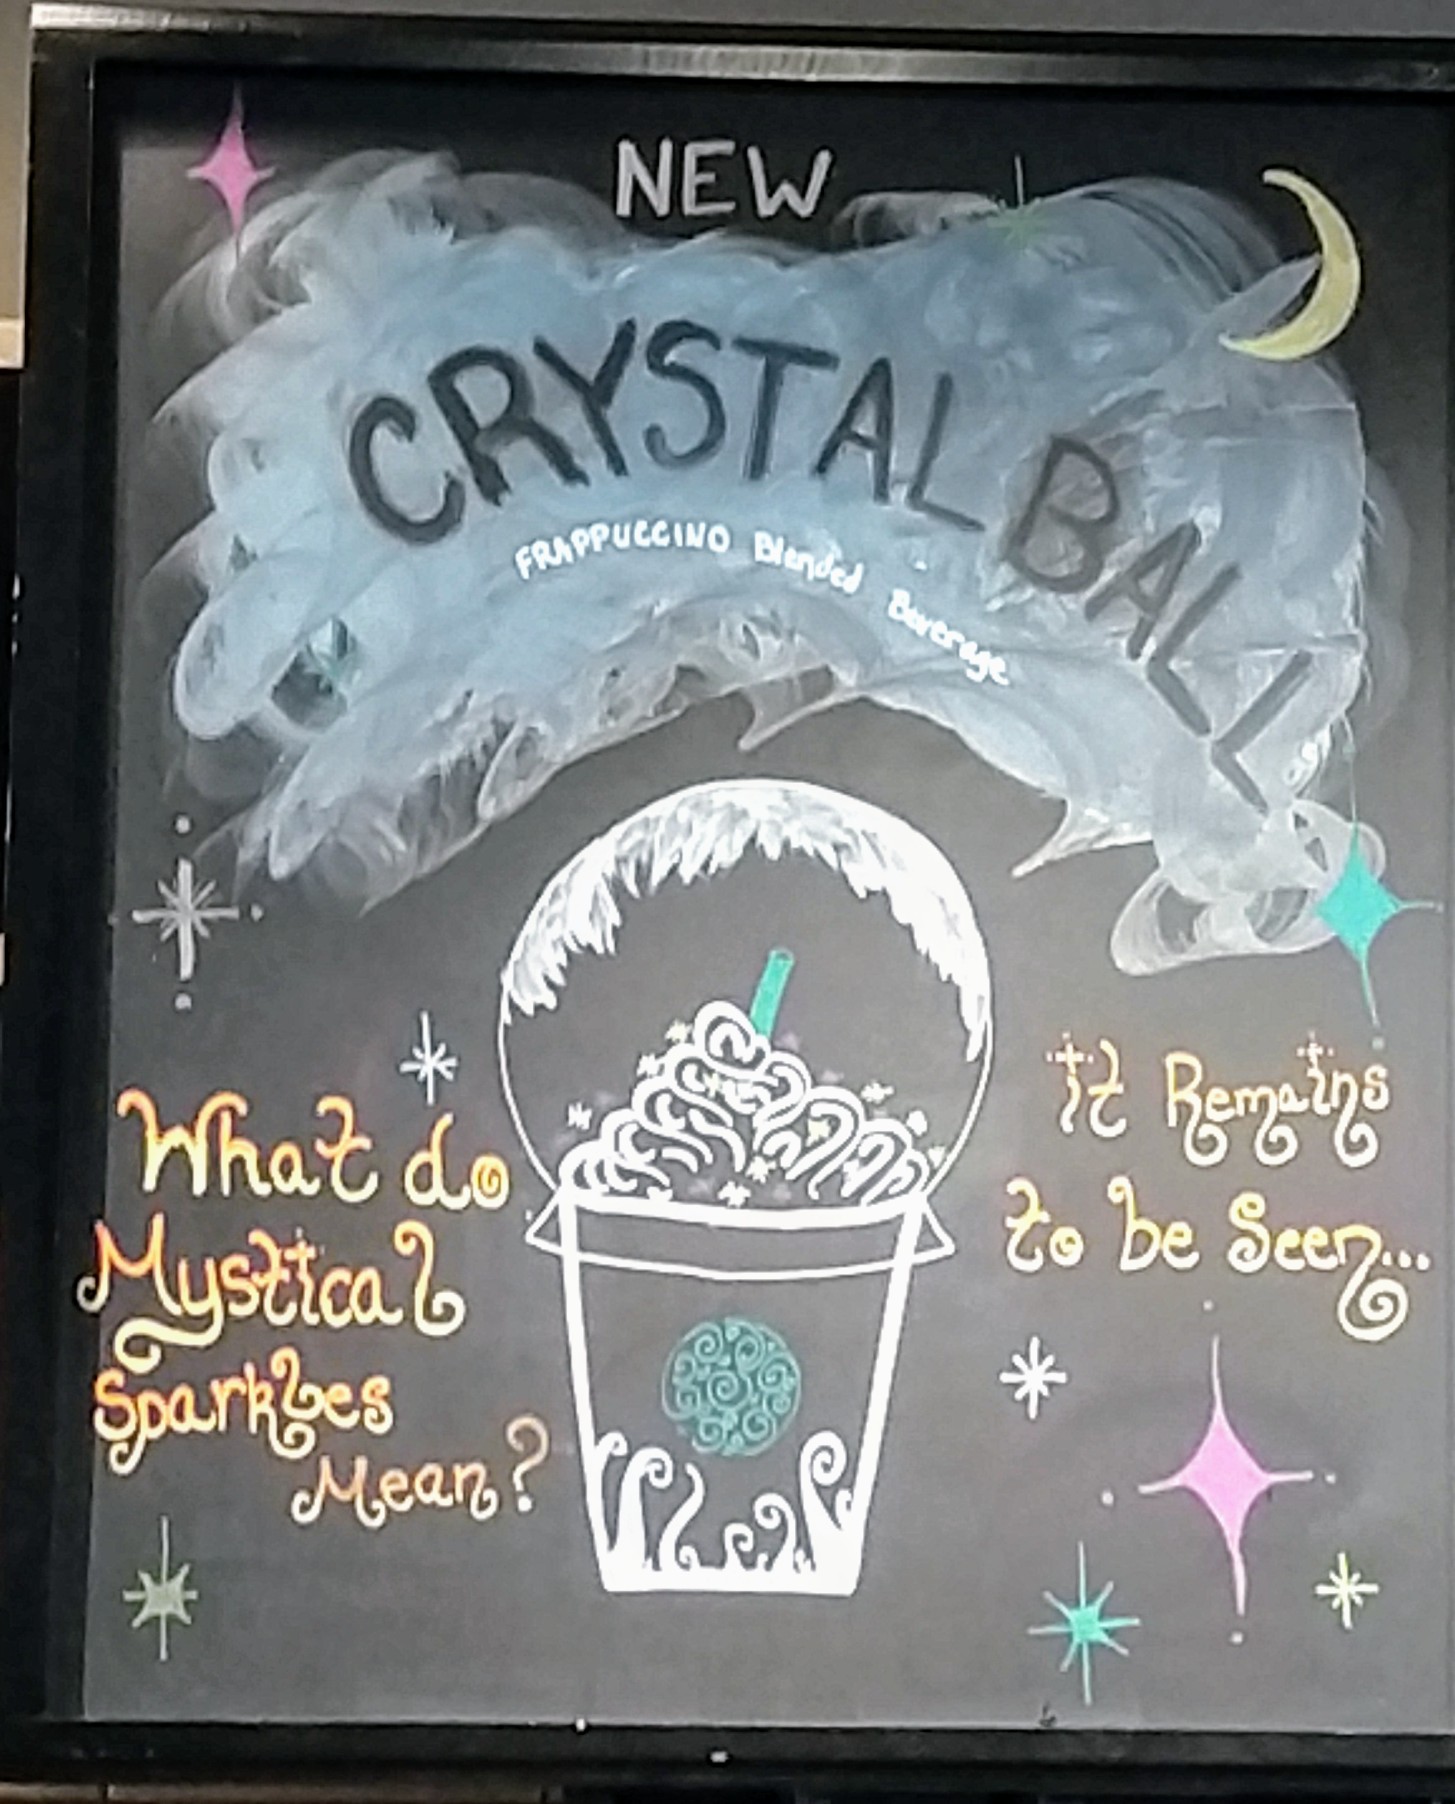 NEW
CRYSTAL BALL
FRAPPUCCINO Blended Beverage
What do
Mystical
Sparkles
Mean?
it Remains
to be Seen...